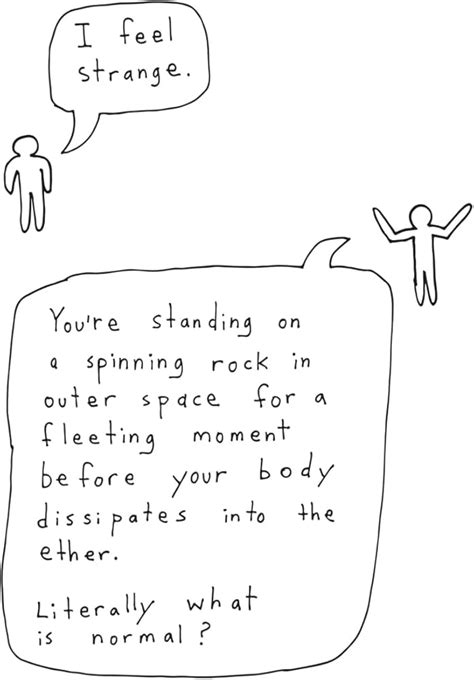 I feel
strange.
You're standing on
a spinning rock in
outer space for a
fleeting moment
before your body
dissipates into the
ether.
Literally what
is normal?